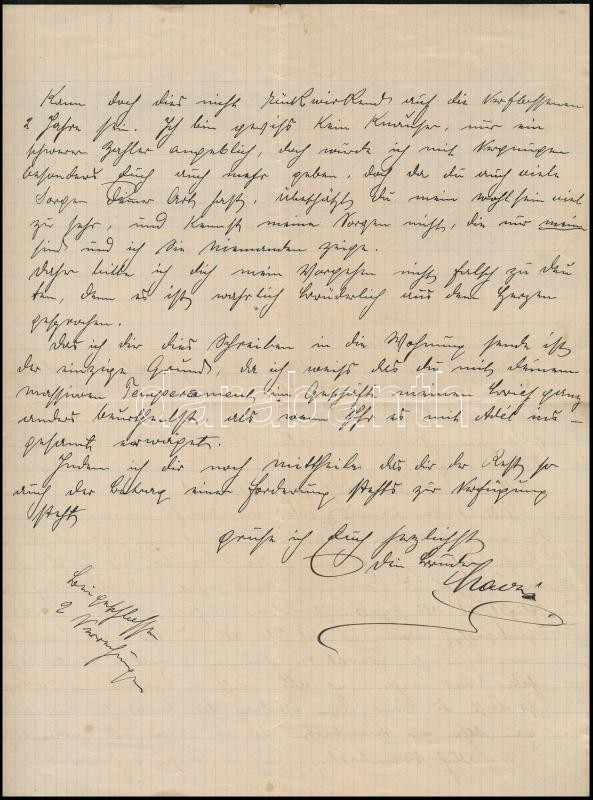 Kann doch dies nicht Rückwirkend auf die Verflossenen
2 Jahre sein. Ich bin gewiss kein Knauser, nur ein
schwerer Zahler angeblich, doch würde ich mit Vergnügen
besonders Euch auch mehr geben, doch da du auch viele
Sorgen deiner Art hast, überschätzt du mein wohlsein viel
zu sehr, und kennst meine Sorgen nicht, die nur meine
sind und ich sie niemanden zeige.
Daher bitte ich dich mein Vorgehen nicht falsch zu deu
ten, denn es ist wahrlich brüderlich aus dem Herzen
gesprochen.
Das ich dir dies Schreiben in die Wohnung sende ist
der einzige Grund, da ich weiss das du mit deinem
massiven Temperament im Geschäfte meinen Brief ganz
anders beurtheilst, als wenn Ihr es mit Adel ins-
gesamt erwäget.
Indem ich dir noch mittheile das dir der Rest so
auch der Betrag einer Forderung stehts zur Verfügung
steht
grüße ich Euch herzlichst
Dein Bruder
Beigeschlossen
2 Rechnungen
darabanth